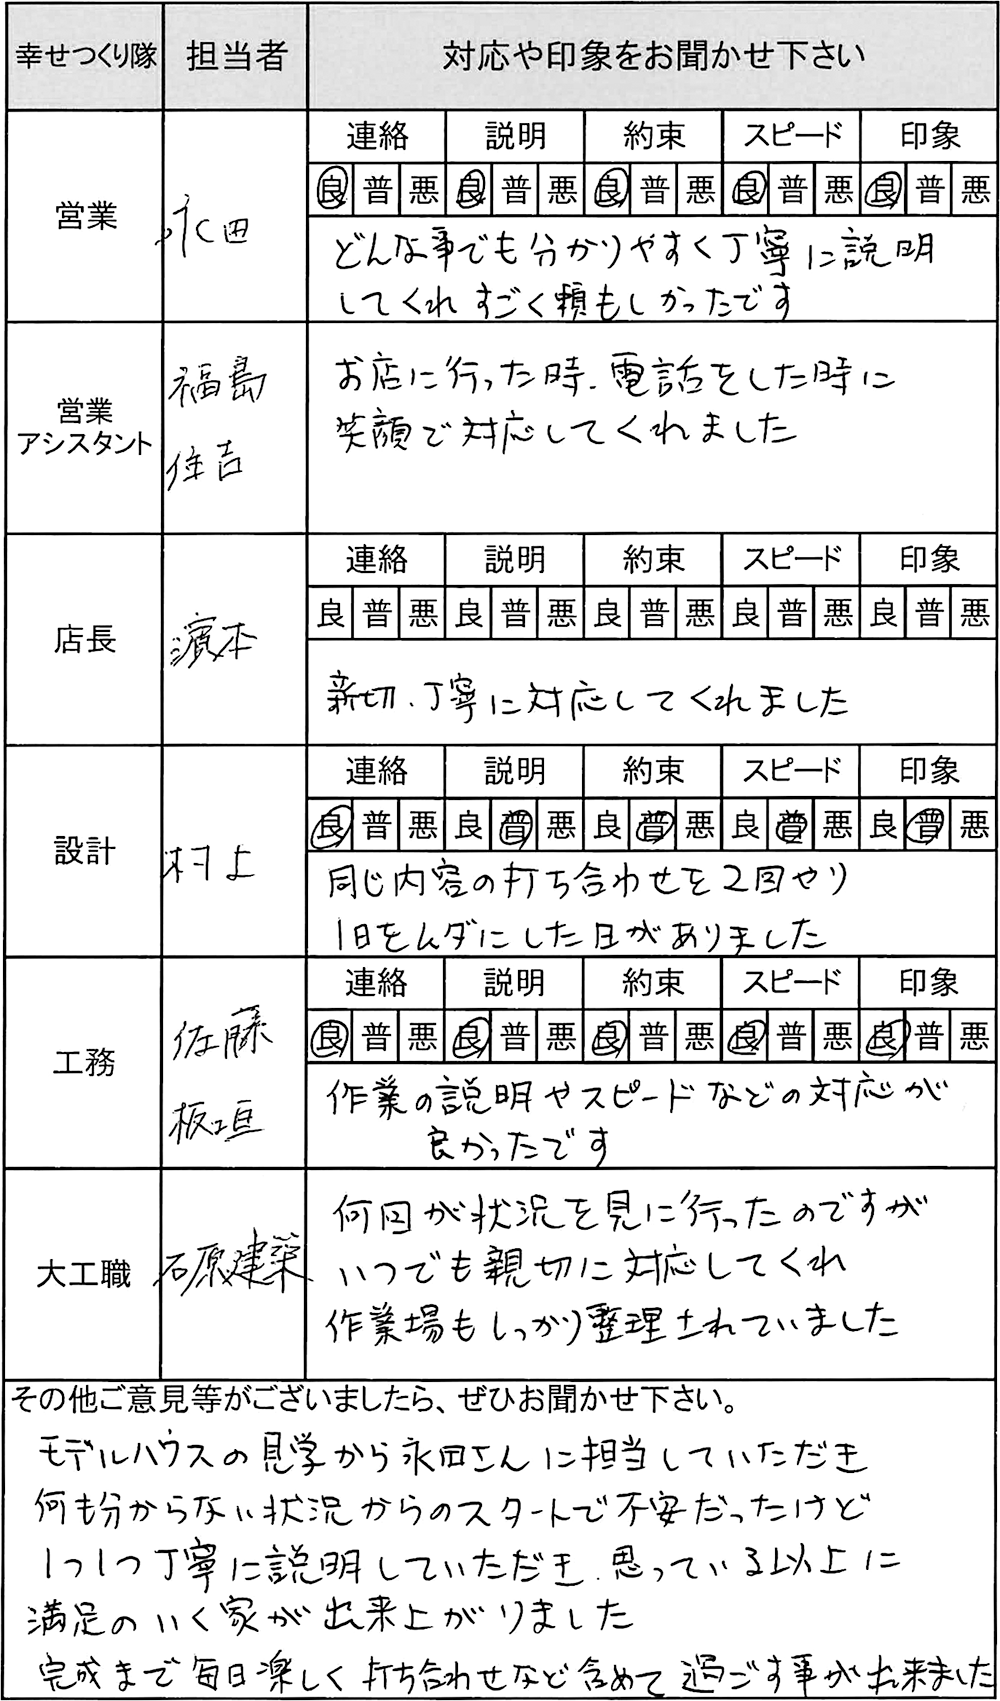 幸せつくり隊 担当者 対応や印象をお聞かせ下さい
連絡 説明 約束 スピード 印象
良 普 悪 良 普 悪 良 普 悪 良 普 悪 良 普 悪
営業 永田
どんな事でも分かりやすく丁寧に説明
してくれすごく頼もしかったです
営業
アシスタント
福島
住吉
お店に行った時、電話をした時に
笑顔で対応してくれました
連絡 説明 約束 スピード 印象
良 普 悪 良 普 悪 良 普 悪 良 普 悪 良 普 悪
店長 濱本
新切、丁寧に対応してくれました
連絡 説明 約束 スピード 印象
良 普 悪 良 普 悪 良 普 悪 良 普 悪 良 普 悪
設計 村上
同じ内容の打ち合わせを2回やり
1日をムダにした日がありました
連絡 説明 約束 スピード 印象
良 普 悪 良 普 悪 良 普 悪 良 普 悪 良 普 悪
工務
佐藤
板垣
作業の説明やスピードなどの対応が
良かったです
大工職 石原建築
何回か状況を見に行ったのですが
いつでも親切に対応してくれ
作業場もしっかり整理されていました
その他ご意見等がございましたら、ぜひお聞かせ下さい。
モデルハウスの見学から永田さんに担当していただき
何も分からない状況からのスタートで不安だったけど
1つ1つ丁寧に説明していただき、思っている以上に
満足のいく家が出来上がりました
完成まで毎日楽しく打ち合わせなど含めて過ごす事が出来ました